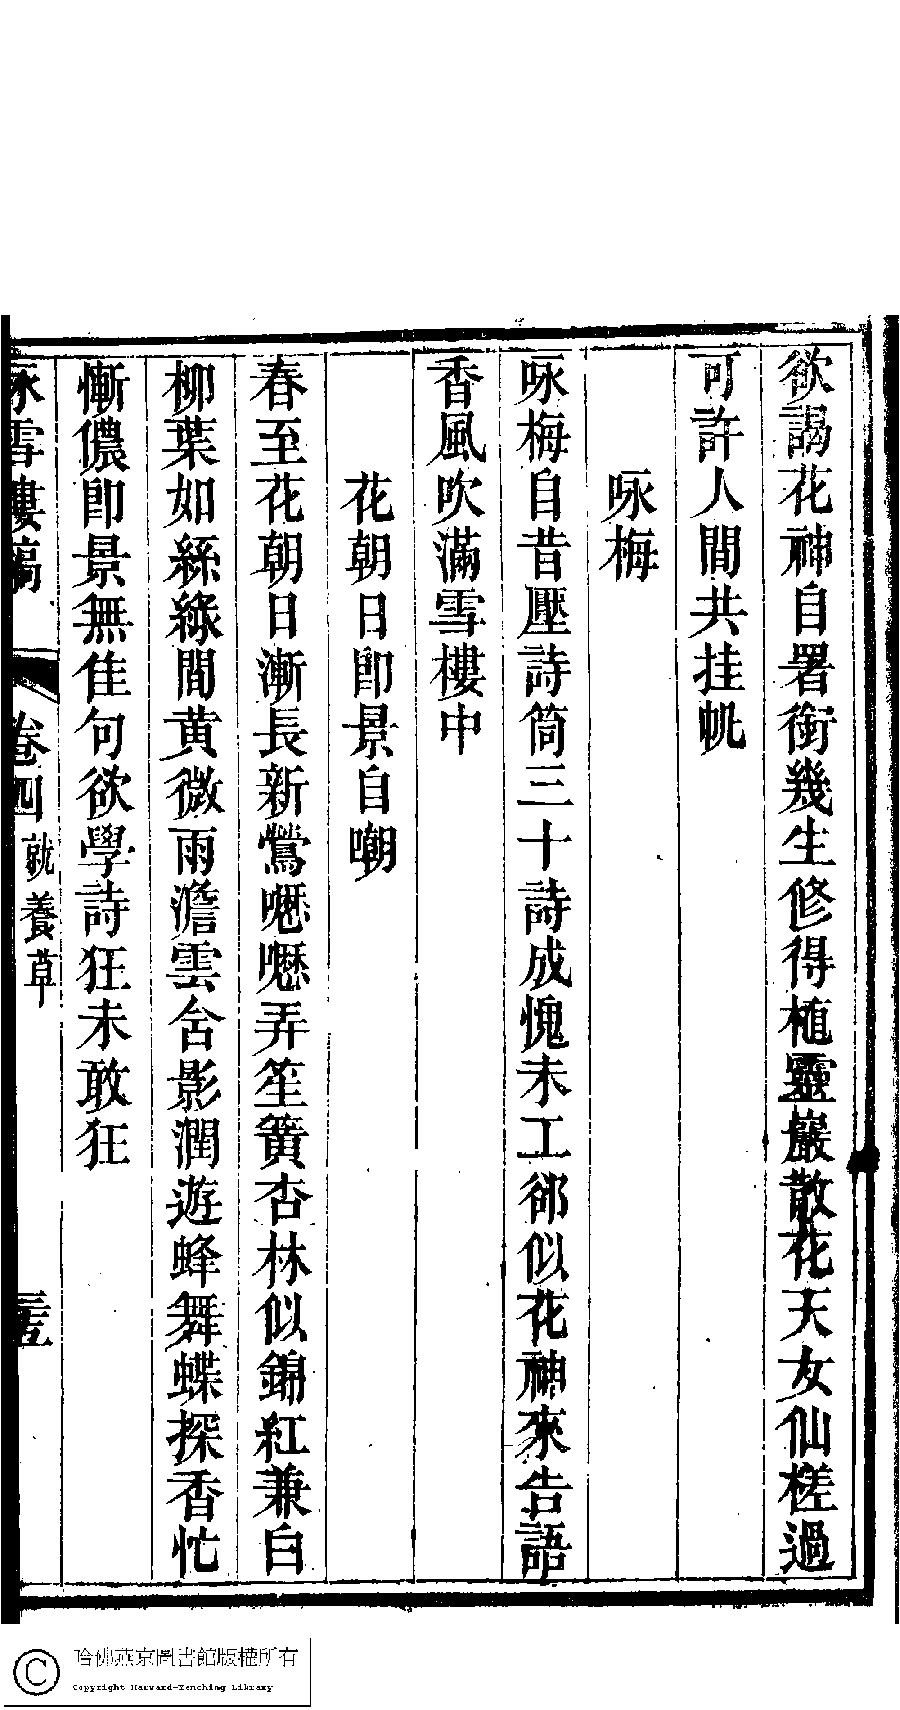 欲謁花神自署銜幾生修得植靈巖散花天女仙槎過
可許人間共挂帆
咏梅
咏梅自昔壓詩筒三十詩成愧未工郤似花神來告語
香風吹滿雪樓中
花朝日卽景自嘲
春至花朝日漸長新鶯嚦嚦弄笙簧杏林似錦紅兼白
柳葉如絲綠間黃微雨澹雲含影潤遊蜂舞蝶探香忙
慚儂卽景無佳句欲學詩狂未敢狂
咏雪樓稿 卷四 就養草
哈佛燕京圖書館版權所有
Copyright Harvard-Yenching Library